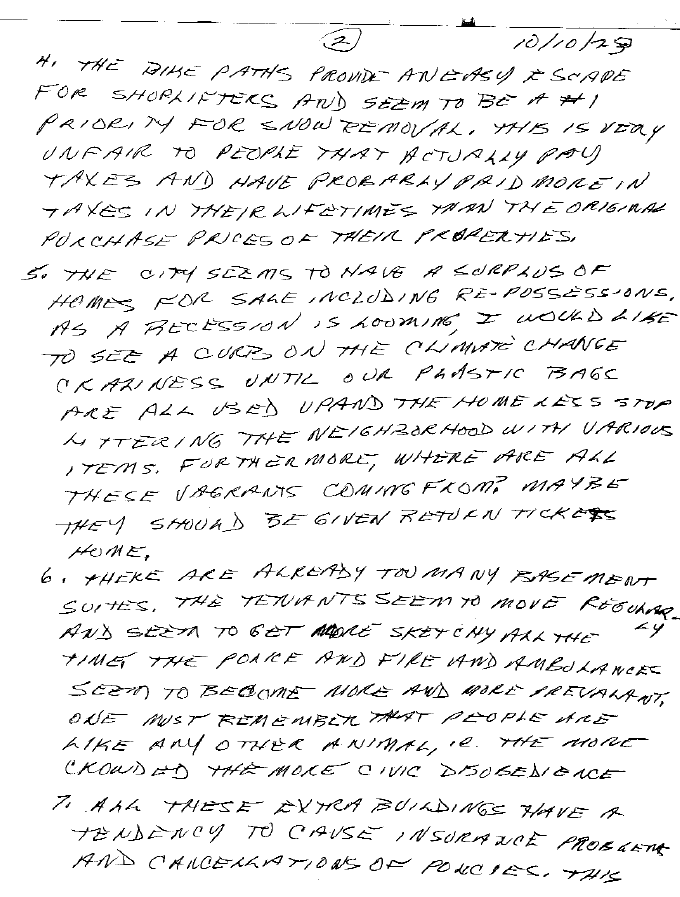 2
10/10/23
4. THE BIKE PATHS PROVIDE AN EASY ESCAPE
FOR SHOPLIFTERS AND SEEM TO BE A #1
PRIORITY FOR SNOW REMOVAL. THIS IS VERY
UNFAIR TO PEOPLE THAT ACTUALLY PAY
TAXES AND HAVE PROBABLY PAID MORE IN
TAXES IN THEIR LIFETIMES THAN THE ORIGINAL
PURCHASE PRICES OF THEIR PROPERTIES.
5. THE CITY SEEMS TO HAVE A SURPLUS OF
HOMES FOR SALE INCLUDING RE-POSSESSIONS.
AS A RECESSION IS LOOMING, I WOULD LIKE
TO SEE A CURB ON THE CLIMATE CHANGE
CRAZINESS UNTIL OUR PLASTIC BAGS
ARE ALL USED UP AND THE HOMELESS STOP
LITTERING THE NEIGHBORHOOD WITH VARIOUS
ITEMS. FURTHERMORE, WHERE ARE ALL
THESE VAGRANTS COMING FROM? MAYBE
THEY SHOULD BE GIVEN RETURN TICKETS
HOME.
6. THERE ARE ALREADY TOO MANY BASEMENT
SUITES. THE TENANTS SEEM TO MOVE REGULAR-
LY
AND SEEM TO GET MORE SKETCHY ALL THE
TIME. THE POLICE AND FIRE AND AMBULANCES
SEEM TO BECOME MORE AND MORE PREVALANT.
ONE MUST REMEMBER THAT PEOPLE ARE
LIKE ANY OTHER ANIMAL, i.e. THE MORE
CROWDED THE MORE CIVIC DISOBEDIENCE
7. ALL THESE EXTRA BUILDINGS HAVE A
TENDENCY TO CAUSE INSURANCE PROBLEMS
AND CANCELLATIONS OF POLICIES. THIS